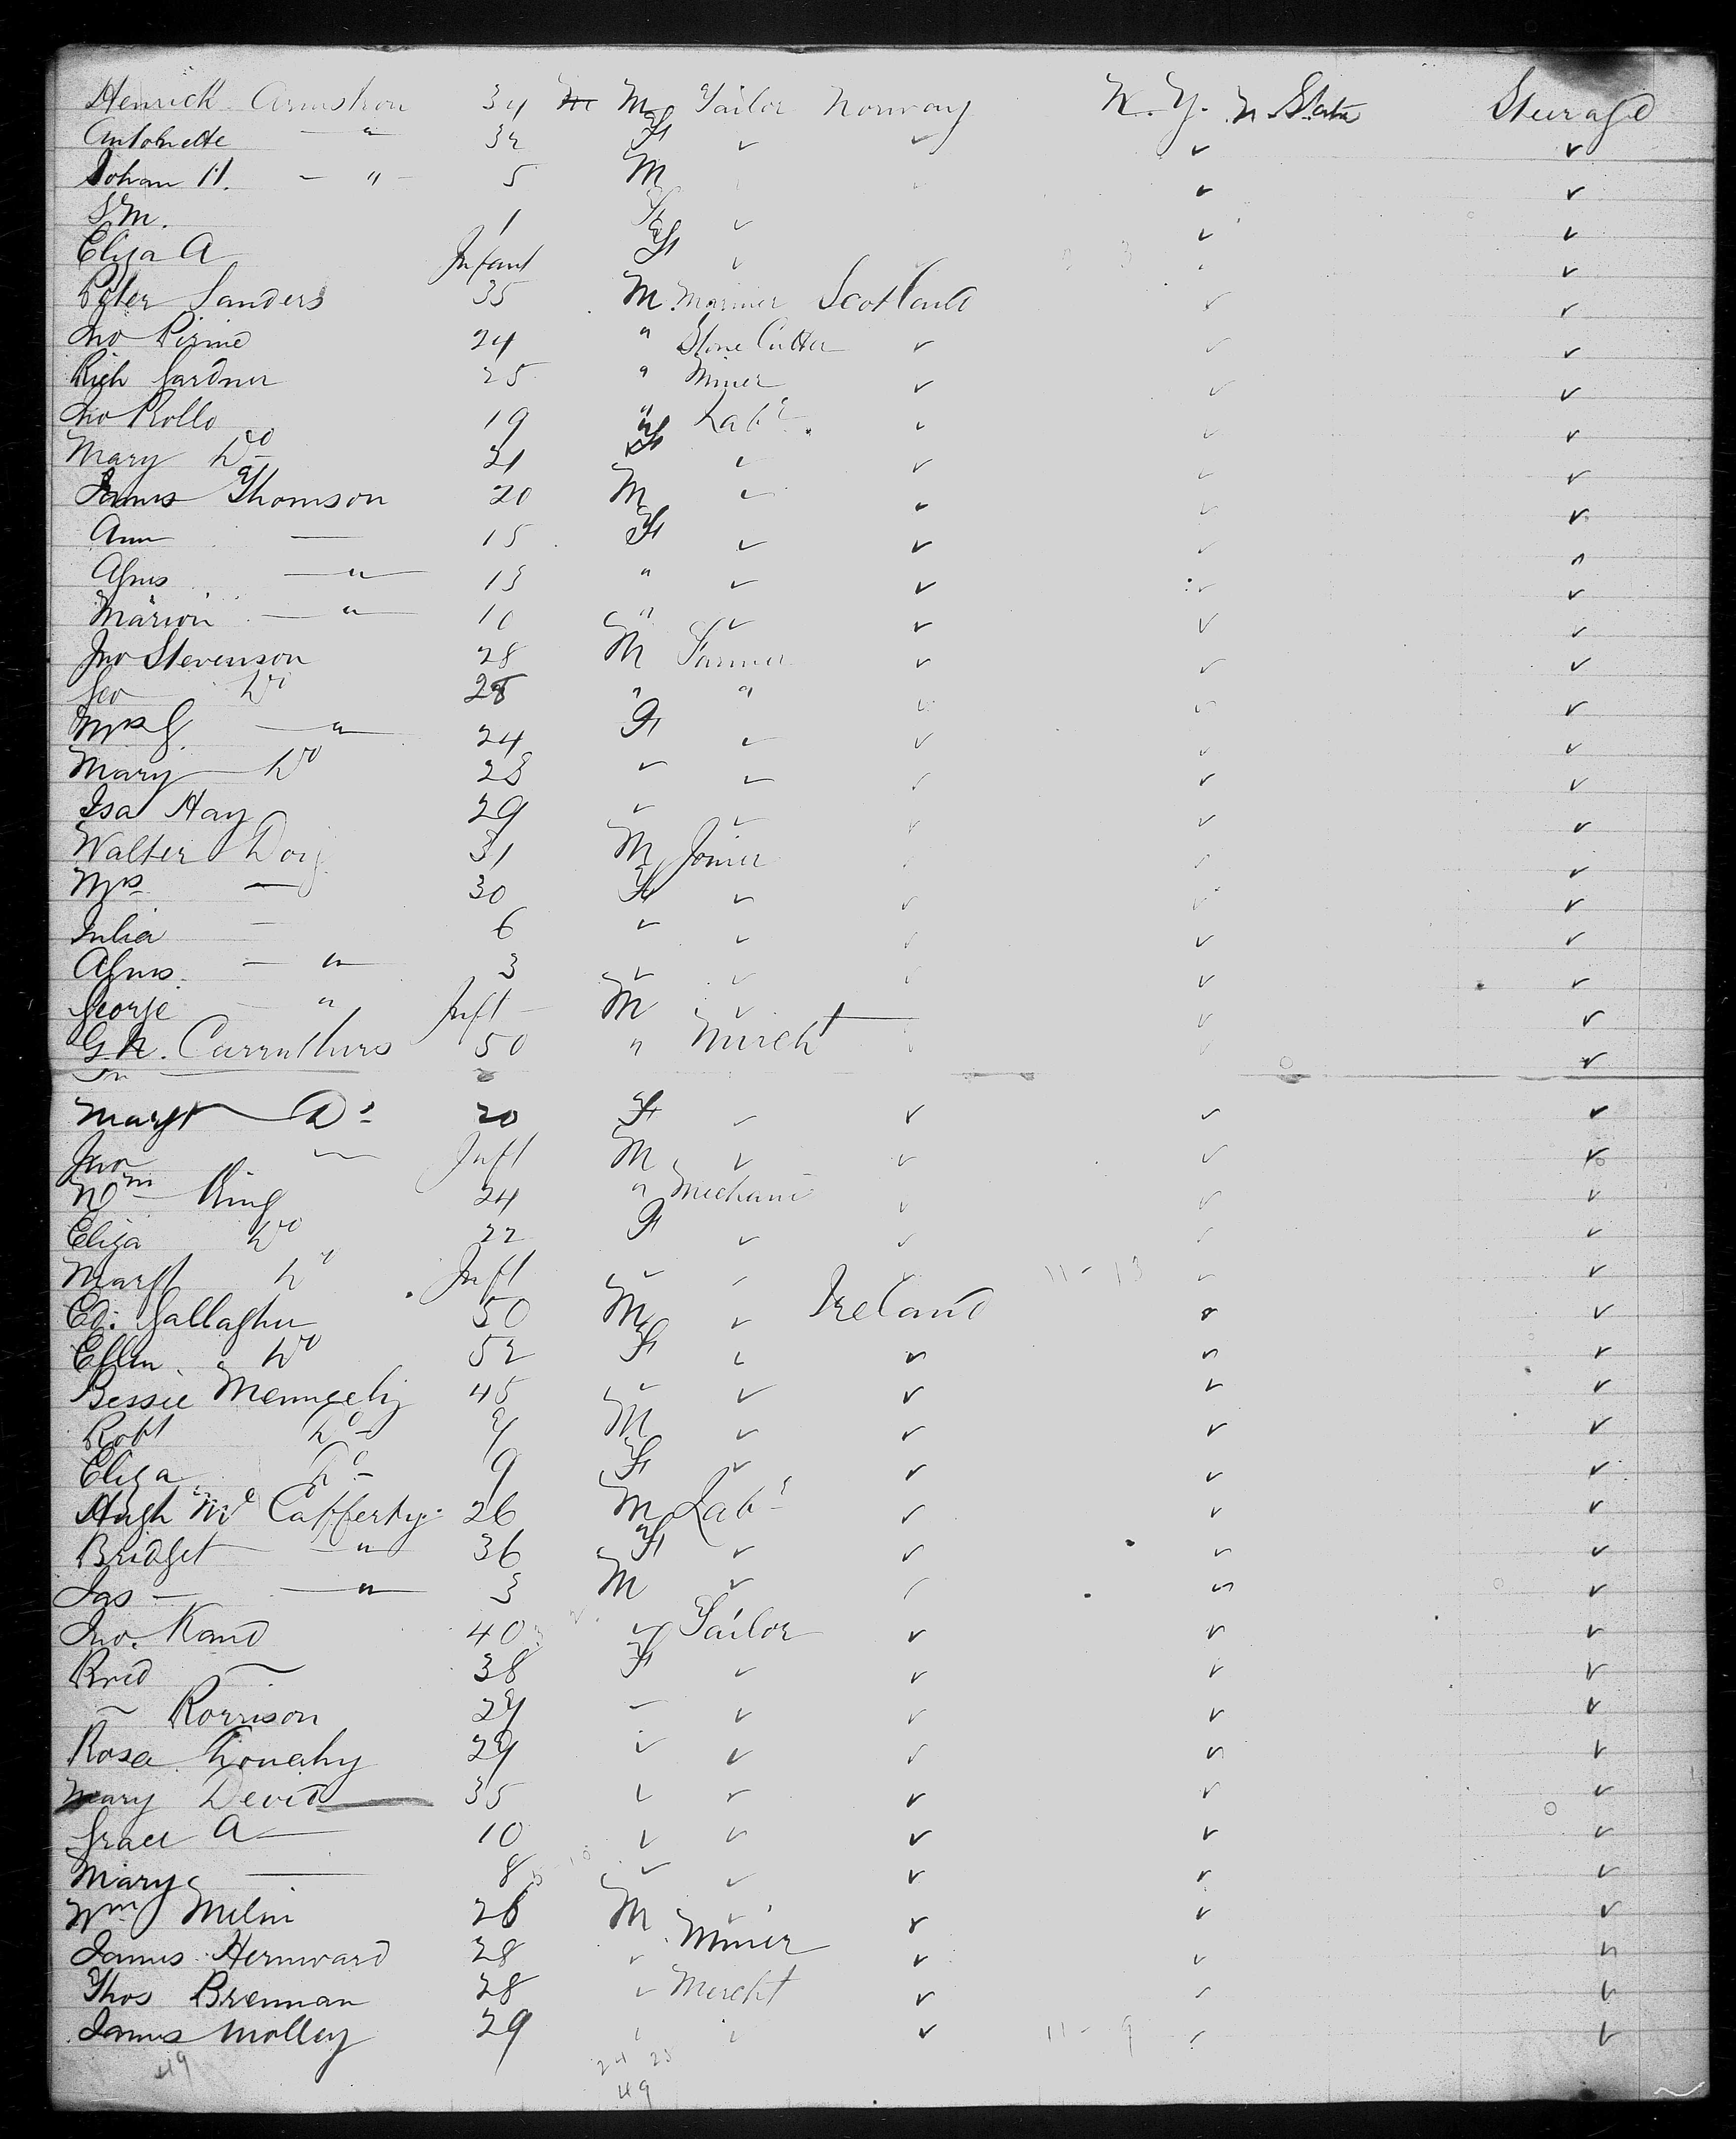 Henrick Armstrom 34 M Tailor Norway N.Y. U. States Steerage
Antoinette " 32 F ✓ ✓ ✓ ✓
Johan H. " 5 M ✓ ✓
S M. 1 F ✓ ✓ ✓
Eliza A Infant F ✓ ✓ ✓
Peter Sanders 35 M Mariner Scotland ✓ ✓
Jno Pirine 24 " Stone Cutter ✓ ✓ ✓
Rich Gardner 25 " Miner ✓ ✓ ✓
Jno Rollo 19 " Labr ✓ ✓ ✓
Mary Do 21 F ✓ ✓ ✓ ✓
James Thomson 20 M ✓ ✓ ✓ ✓
Ann — 15 F ✓ ✓ ✓ ✓
Agnes " 13 " ✓ ✓ ✓ ✓
Marion " 10 " ✓ ✓ ✓ ✓
Jno Stevenson 28 M Farmer ✓ ✓ ✓
Geo Do 28 " " ✓ ✓ ✓
Mrs G. " 24 F ✓ ✓ ✓ ✓
Mary Do 28 ✓ ✓ ✓ ✓ ✓
Isa Hay 29 ✓ ✓ ✓ ✓ ✓
Walter Doig 31 M Joiner ✓ ✓ ✓
Mrs — 30 F ✓ ✓ ✓ ✓
Julia — 6 ✓ ✓ ✓ ✓ ✓
Agnes " 3 ✓ ✓ ✓ ✓ ✓
George " Inft M ✓ ✓ ✓
G. N. Carruthers 50 " Mercht ✓ ✓ ✓
Margt Do 20 F ✓ ✓ ✓ ✓
Jno — Inft M ✓ ✓ ✓ ✓
Wm King 24 " Mechanic ✓ ✓ ✓
Eliza Do 22 F ✓ ✓ ✓ ✓
Margt Do Inft ✓ ✓ ✓ 11-13 ✓ ✓
Ed. Gallagher 50 M ✓ Ireland ✓ ✓
Ellen Do 52 F ✓ ✓ ✓ ✓
Bessie Menneely 45 ✓ ✓ ✓ ✓ ✓
Robt Do 7 M ✓ ✓ ✓ ✓
Eliza Do 9 F ✓ ✓ ✓ ✓
Hugh Mc Cafferty 26 M Labr ✓ ✓ ✓
Bridget " 36 F ✓ ✓ ✓ ✓
Jas — " 3 M ✓ ✓ ✓ ✓
Jno. Kand 40 ✓ Tailor ✓ ✓ ✓
Brid — 38 F ✓ ✓ ✓ ✓
— Rorrison 27 — ✓ ✓ ✓ ✓
Rosa Donahy 27 ✓ ✓ ✓ ✓ ✓
Mary Devid 35 ✓ ✓ ✓ ✓ ✓
Grace A — 10 ✓ ✓ ✓ ✓ ✓
Mary — 8 ✓ ✓ ✓ ✓ ✓
Wm Milin 26 M ✓ ✓ ✓ ✓
James Hernward 28 ✓ Miner ✓ ✓ ✓
Thos Brennan 28 ✓ Mercht ✓ ✓ ✓
James Molley 29 ✓ ✓ ✓ 11-9 ✓ ✓
49 24 25
49